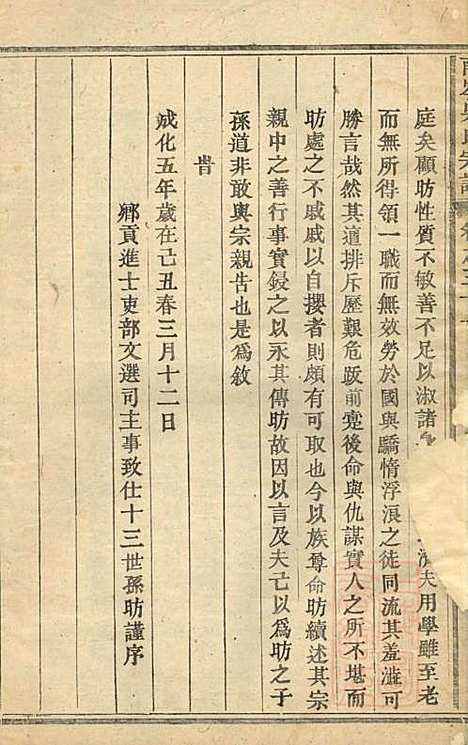 庭矣顧昉性質不敏善不足以淑諸夫用學雖至老
而無所得領一職而無效勞於國與驕惰浮浪之徒同流其羞澁可
勝言哉然其遭排斥歷艱危跋前疐後命與仇謀實人之所不堪而
昉處之不戚戚以自攖者則頗有可取也今以族尊命昉續述其宗
親中之善行事實鋟之以永其傳昉故因以言及夫己以為昉之子
孫道非敢與宗親告也是為敘
旹
成化五年歲在己丑春三月十二日
鄉貢進士吏部文選司主事致仕十三世孫昉謹序